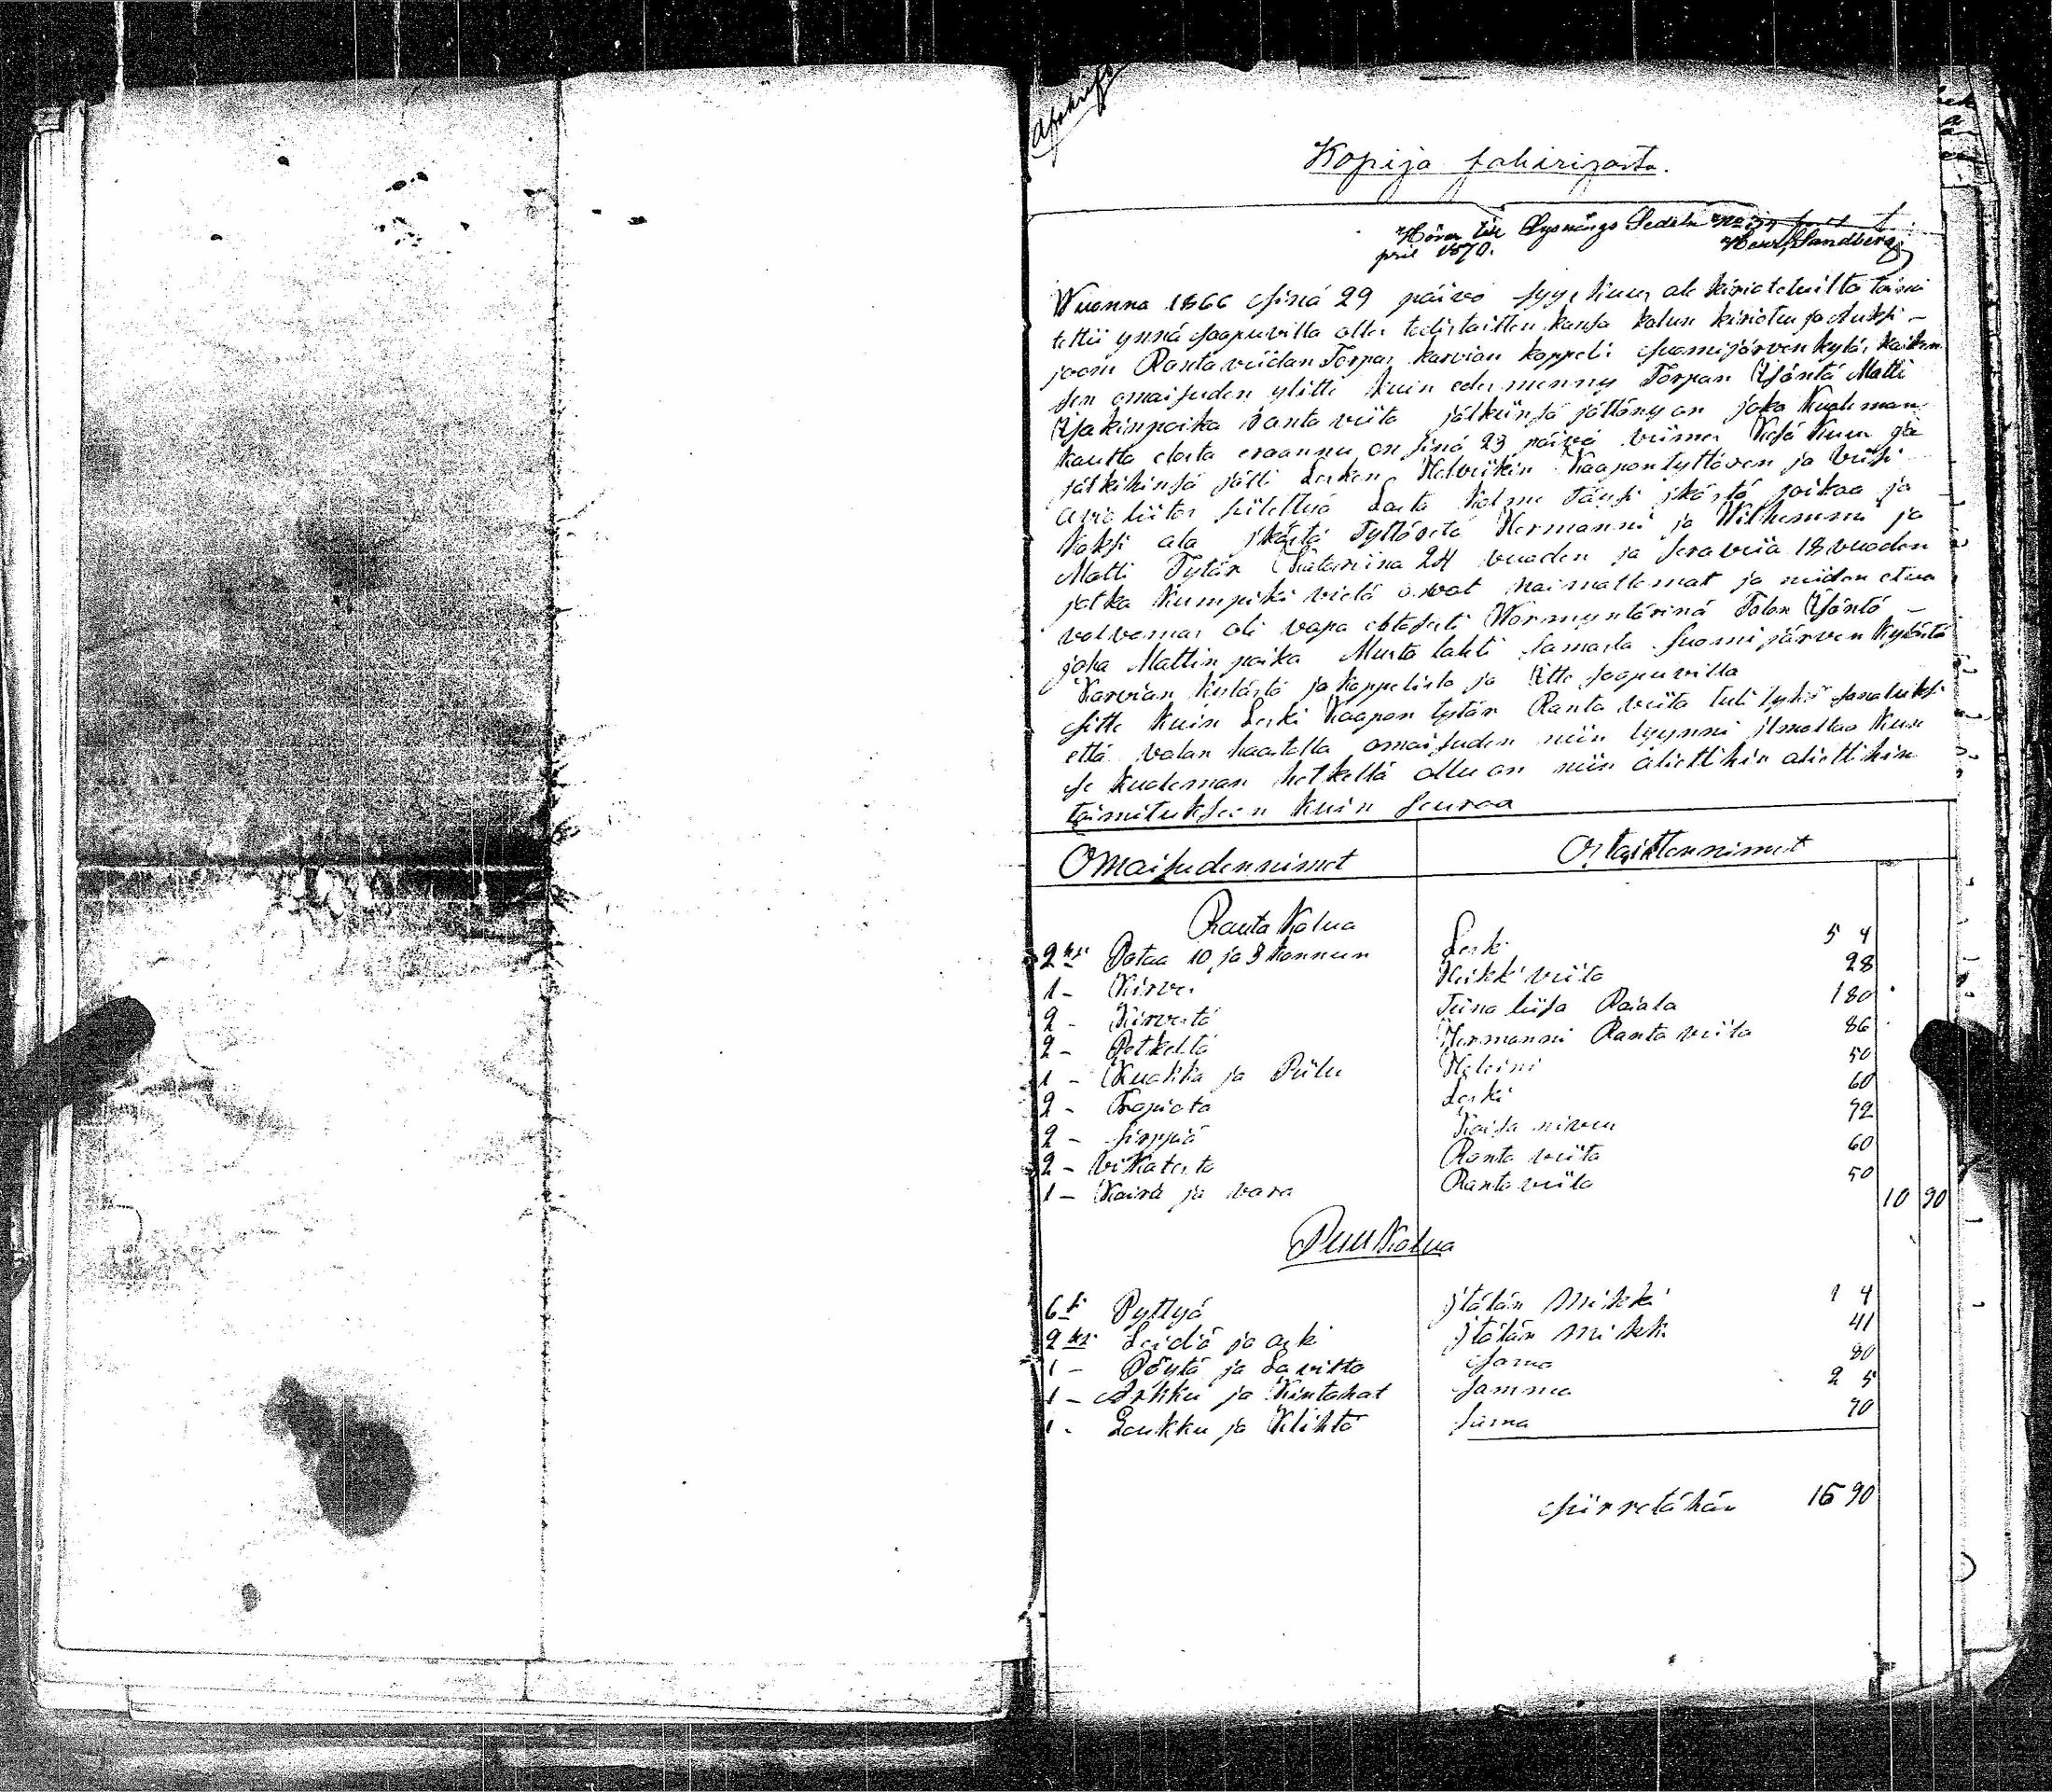 Afskrift
Kopija sakirijasta.
Hörer till Lysnings Sedeln No 37
pril 1870. Henr. Sandberg
Wuonna 1866 Sinä 29 päivä Syyskuus ale kirjotetuilta toimi
tettii ynnä saapuvilla olles todistaitten kansa kalun kirjotus ja Auksi-
jooni Ranta viidan Torpas Karvian kappeli Suomijärven kylä, kaiken
sen omaisuden ylitte kuin edesmenny Torpan Isäntä Matti
Isakinpoika Ranta viita jälkiinsä jättäny on joka Kualeman
kautta elosta eraannu on sinä 23 päivä viimes Kesä Kuus ja
jälkihinsä jätti Lesken Helviikin Kaapontyttären ja viisi
avioliitos siitettyä Lasta kolme Täysi ikästä poikaa ja
kaksi ala ikästä Tyttärtä Hermanni ja Wilhemmi ja
Matti Tytär Katariina 24 vuoden ja Seraviia 18 vuoden
jotka kumpiki vielä ovat naimattomat ja niiden etua
valvomas oli vapa ehtosesti Wormyntärinä Talon Isäntä -
joha Mattin poika Musta lahti samasta Suomijärven kylästä
Karvian kylästä ja kappelista ja Itte saapuvilla
Sitte kuin Leski Kaapon tytär Ranta viita tuli sanatuksi
että valan haastolla omaisuden niin tyynni ilmottaa kun
se kualeman hetkellä ollu on niin otettihin
toimitukseen kuin seuraa
Omaisudennimet Ostaittennimet
Rauta Kalua
2ksi Pataa 10 ja 3 kannun Leski 5 4
1 - Kirves Heikki viita 28
2 - Kirvestä Tiina liisa Rajala 180
2 - Petkeltä Hermanni Ranta viita 86
1 - Kuakka ja Piilu Heleini 50
2 - Trapiota Leski 60
2 - Sirppiä Kaisa 72
2 - Vikatesta Ranta viita 60
1 - Kaira ja vara Ranta viita 50
10 90
PuuKalua
6s Pyttyä jtälän Mikki 1 4
2ksi Leidiä ja aski jtälän Mikki 41
1 - Pöytä ja Lavitta Sama 80
1 - Arkku ja Kintahat Samma 2 5
1 - Loukku ja Klihtä Sama 70
Siirretähän 16 90